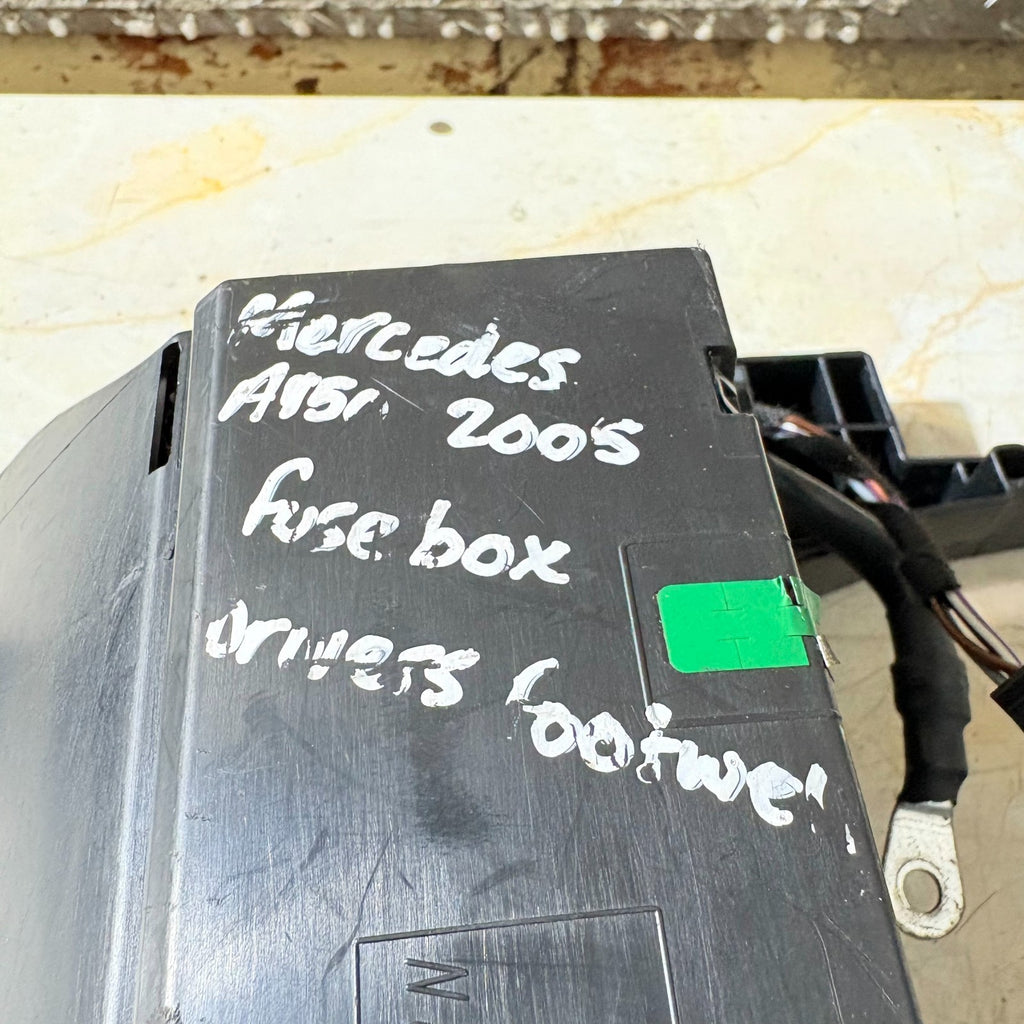 Mercedes
A150 2005
fuse box
Drivers footwell